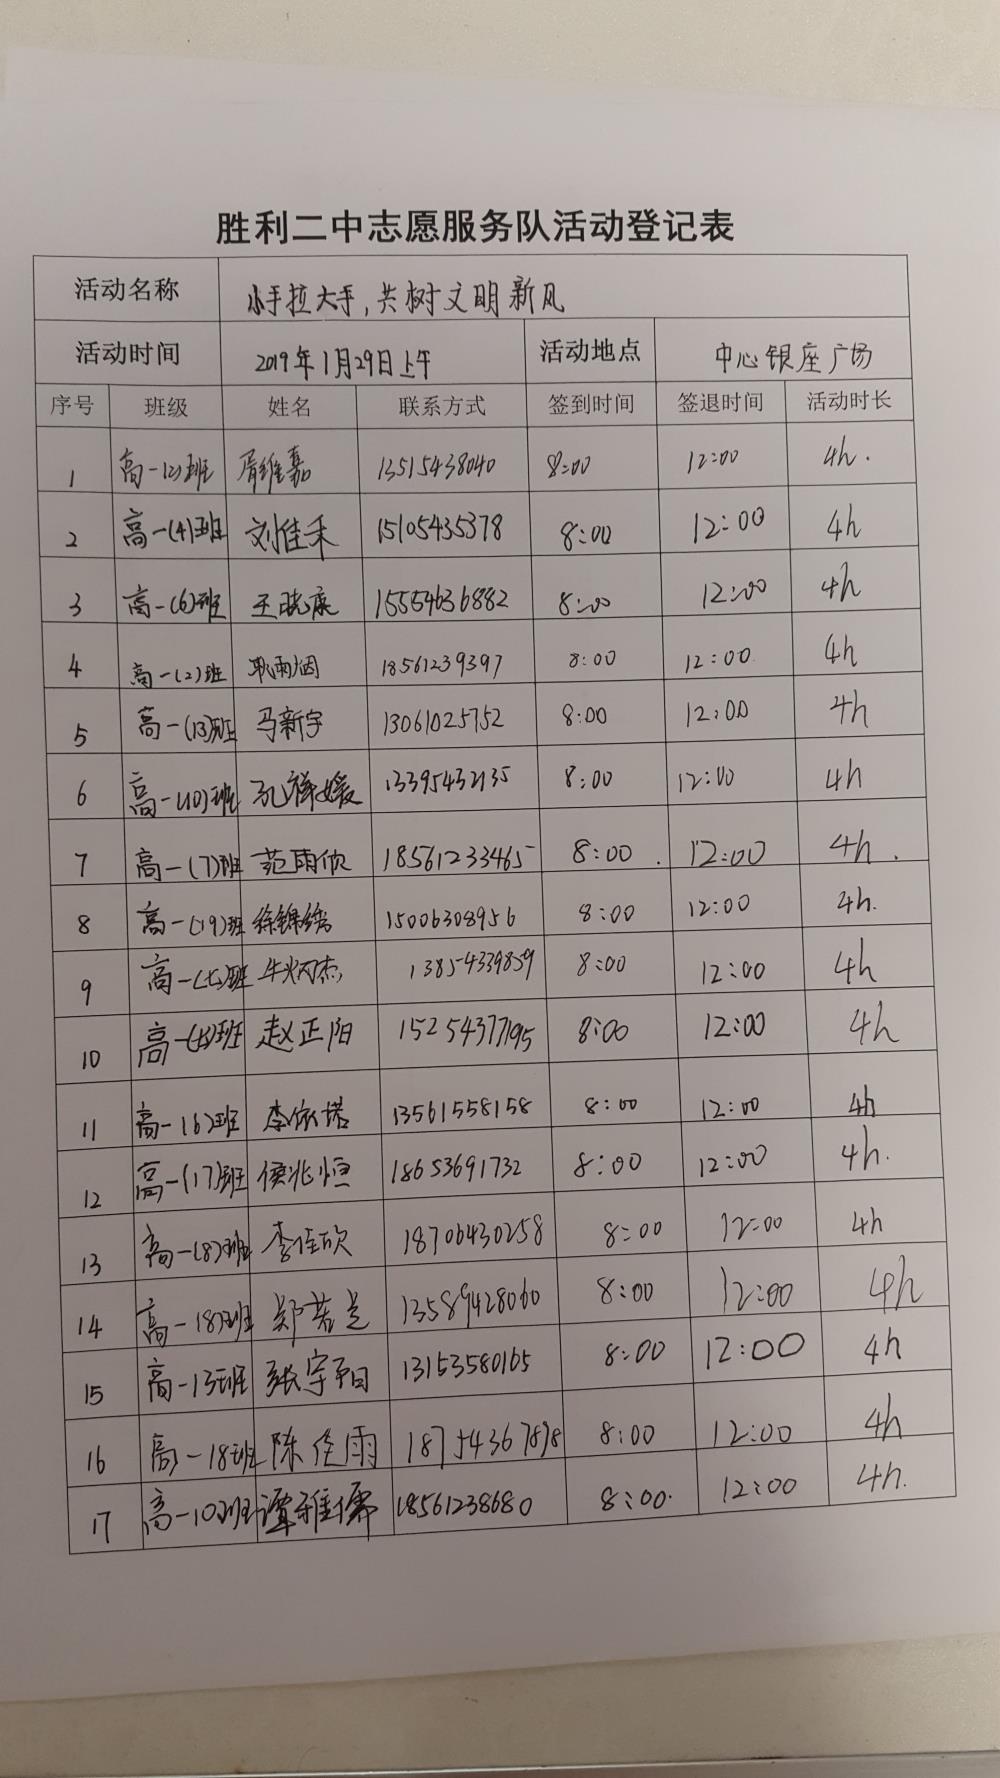 胜利二中志愿服务队活动登记表
活动名称 小手拉大手,共树文明新风
活动时间 2019年1月29日上午 活动地点 中心银座广场
序号 班级 姓名 联系方式 签到时间 签退时间 活动时长
1 高一(2)班 胥维嘉 13515438040 8:00 12:00 4h.
2 高一(4)班 刘佳禾 15105435378 8:00 12:00 4h
3 高一(6)班 王晓康 15554636882 8:00 12:00 4h
4 高一(2)班 耿雨烟 18561239397 8:00 12:00 4h
5 高一(13)班 马新宇 13061025752 8:00 12:00 4h
6 高一(10)班 孔祥媛 13395432135 8:00 12:00 4h
7 高一(7)班 范雨欣 18561233465 8:00. 12:00 4h.
8 高一(19)班 徐锦绣 15006308956 8:00 12:00 4h.
9 高一(七)班 牛炳杰 13854339859 8:00 12:00 4h
10 高一班 赵正阳 15254377195 8:00 12:00 4h
11 高一(6)班 李依诺 13561558158 8:00 12:00 4h
12 高一(17)班 侯兆恒 18653691732 8:00 12:00 4h.
13 高一(8)班 李佳欣 18706430258 8:00 12:00 4h
14 高一(8)班 郑若兰 13589428060 8:00 12:00 4h
15 高一13班 张宇 13153580165 8:00 12:00 4h
16 高一18班 陈佳雨 18754367898 8:00 12:00 4h
17 高一10班 谭雅儒 18561238680 8:00. 12:00 4h.